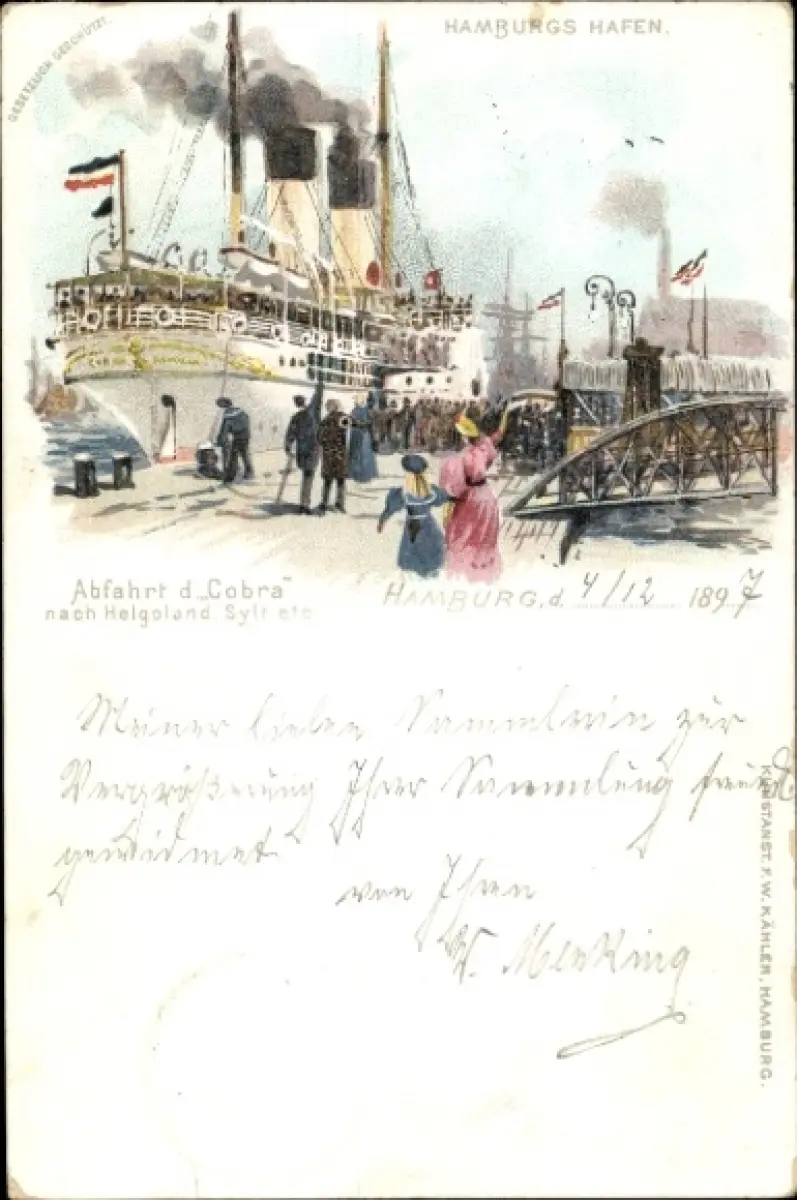 GESETZLICH GESCHÜTZT.
HAMBURGS HAFEN.
Abfahrt d. „Cobra"
nach Helgoland, Sylt etc
HAMBURG, d. 4/12 1897
Meiner lieben Sammlerin zur
Vergrößerung Ihrer Sammlung freundl.
gewidmet
von Ihrem
Menking
KUNSTANST. F. W. KÄHLER, HAMBURG.